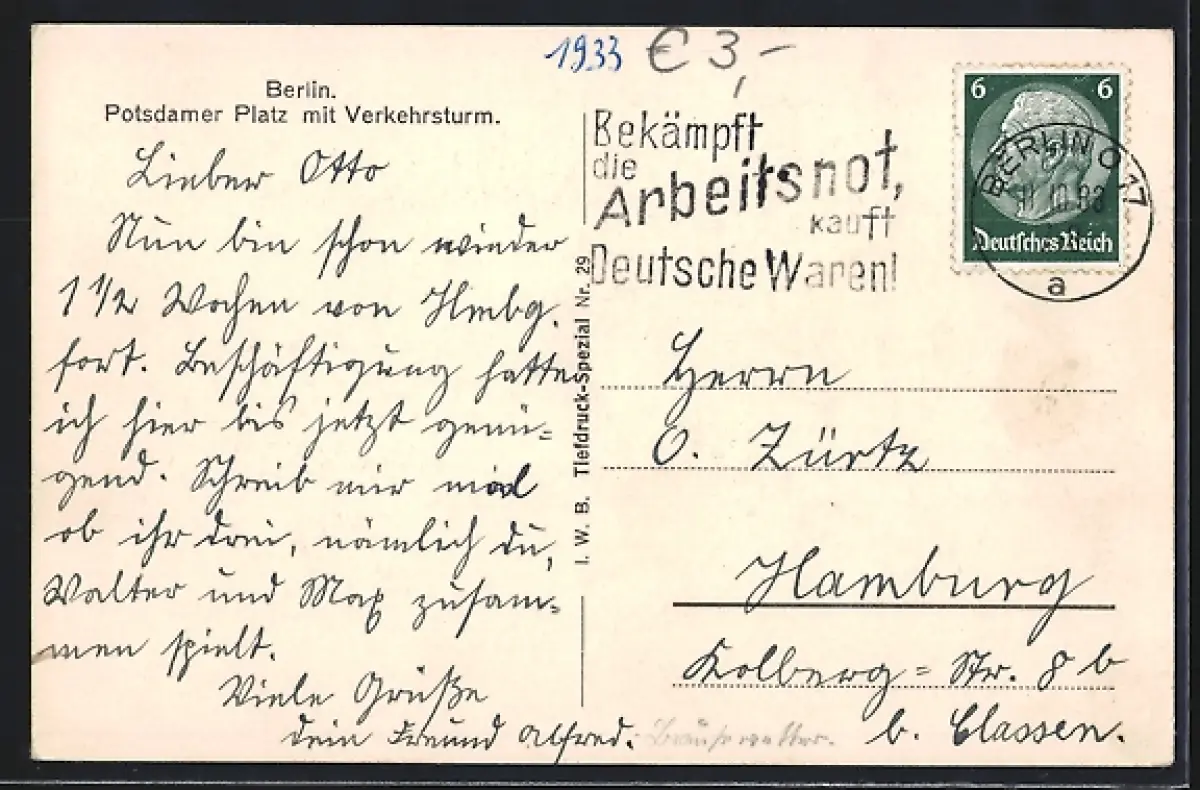 1933 € 3,-
Berlin.
Potsdamer Platz mit Verkehrsturm.
Lieber Otto
Nun bin schon wieder
1 1/2 Wochen von Hmbg.
fort. Beschäftigung hatte
ich hier bis jetzt genü=
gend. Schreib mir mal
ob ihr drei, nämlich du,
Walter und Max zusam=
men spielt.
Viele Grüße
dein Freund Alfred.
I. W. B. Tiefdruck-Spezial Nr. 29
Bekämpft
die
Arbeitsnot,
kauft
Deutsche Waren!
6 6
Deutsches Reich
BERLIN O 17
a
Herrn
O. Zürtz
Hamburg
Kolberg= Str. 8 b
b. Classen.